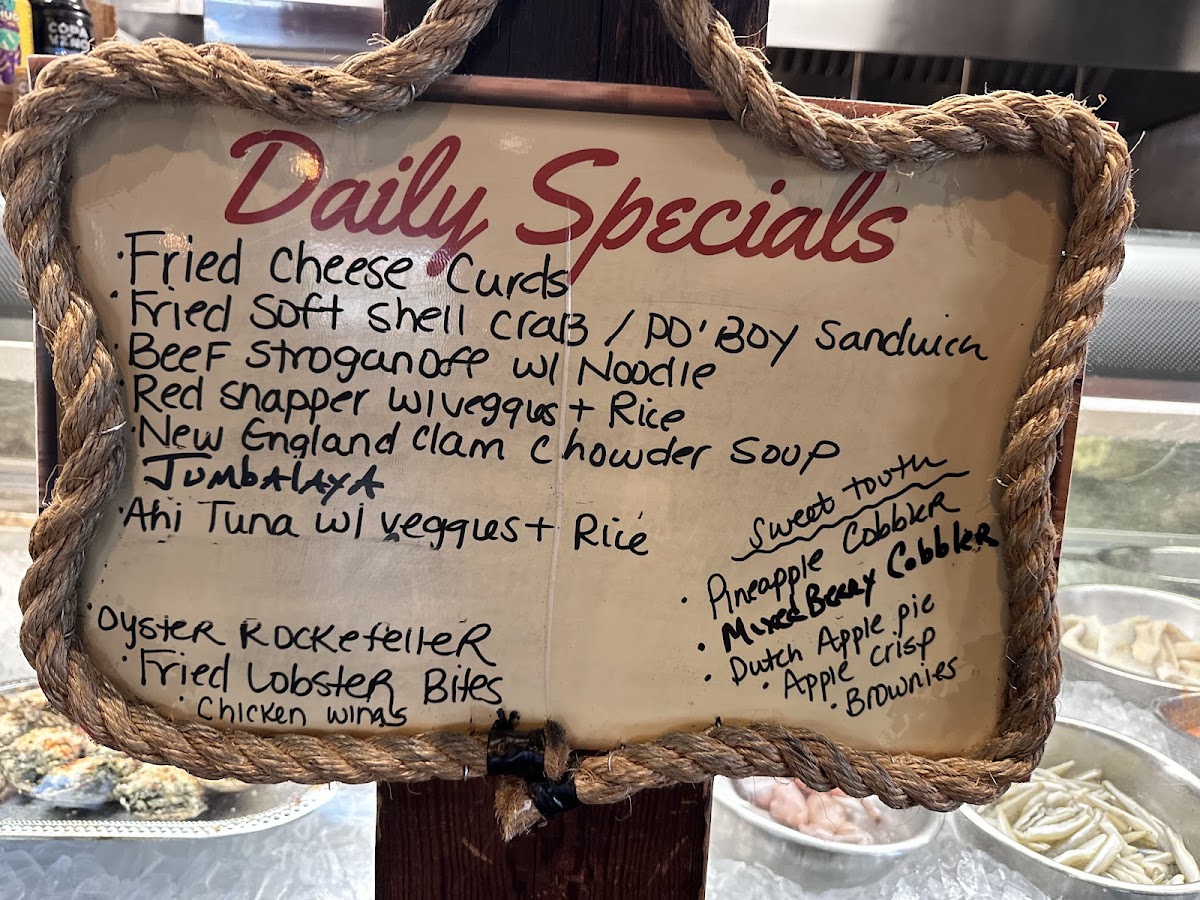 COPA
VINO
Daily Specials
·Fried Cheese Curds
·Fried Soft Shell CraB / PO'BOY Sandwich
·BeeF Stroganoff w/ Noodle
·Red Snapper w/veggus + Rice
·New England Clam Chowder Soup
JumbAlAyA
·Ahi Tuna w/ veggus + Rice
·OysteR ROCKefelleR
·Fried LobsteR Bites
·Chicken wings
Sweet tooth
·Pineapple CobbleR
·Mixed Berry CobbleR
·Dutch Apple pie
·Apple crisp
·Brownies